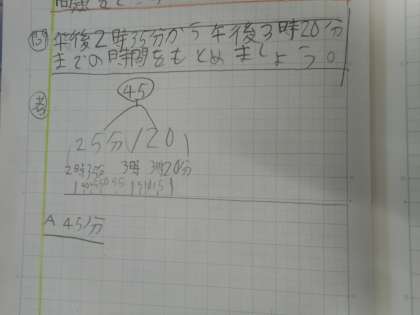 問 午後2時35分から午後3時20分
までの時間をもとめましょう。
考
45
25分/20
2時35分 3時 3時20分
A 45分